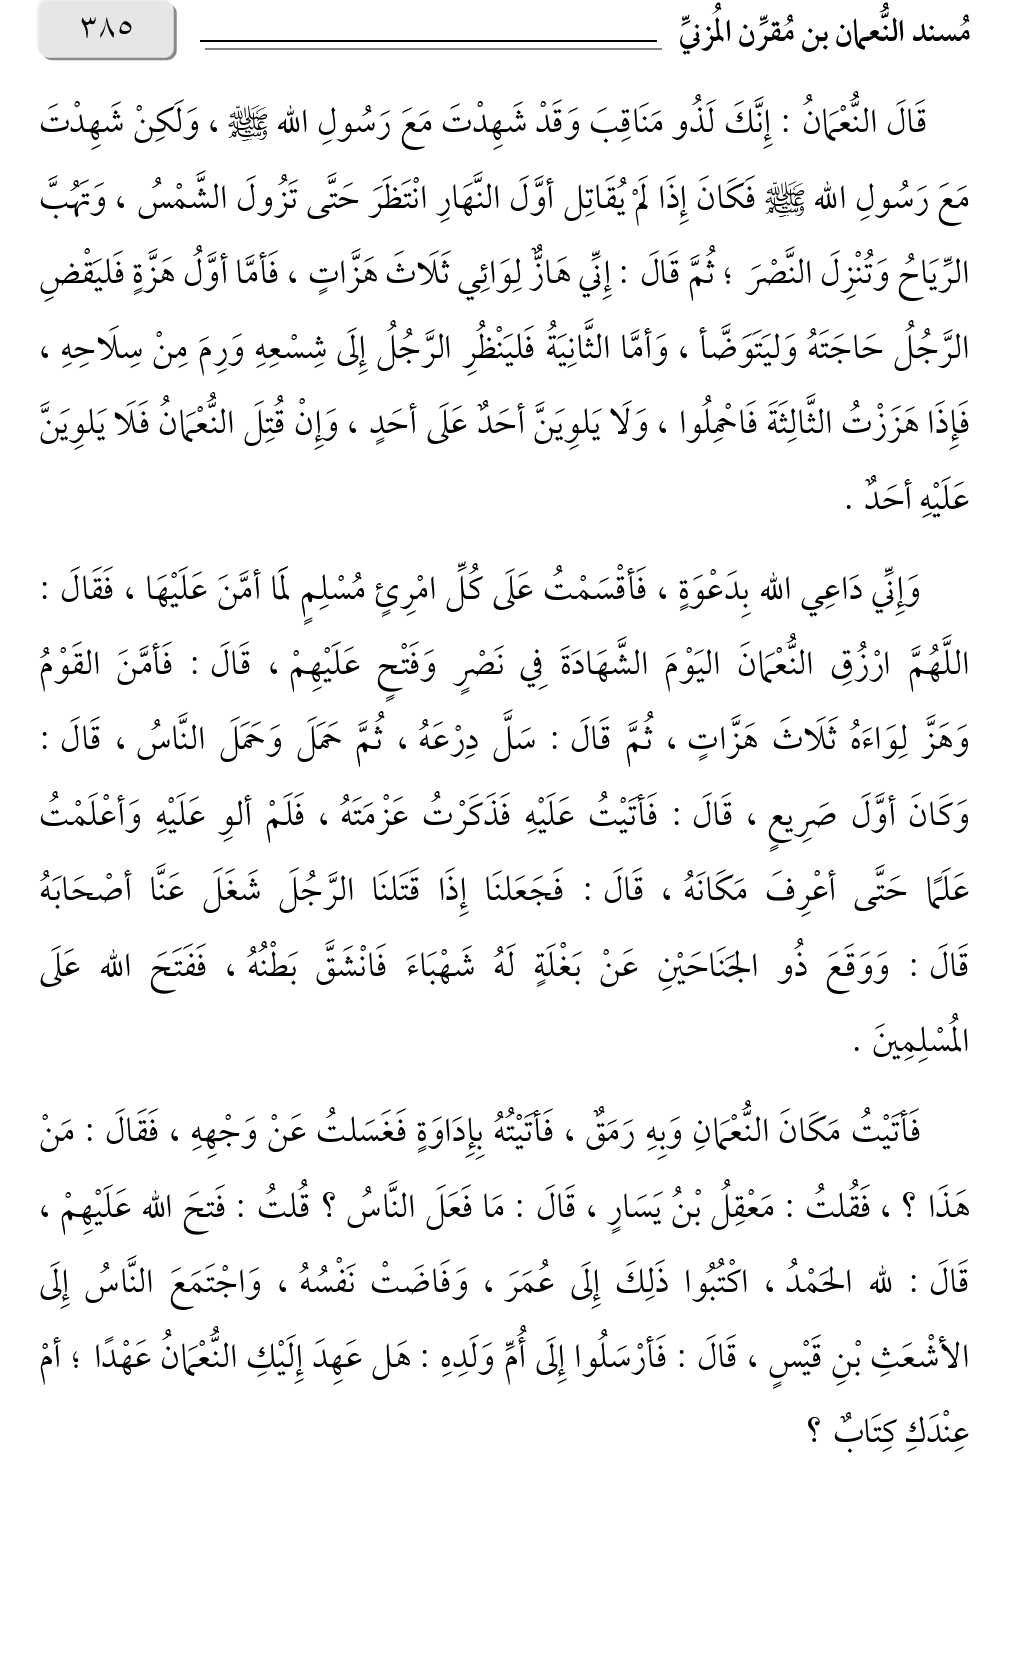 مُسند النُّعمان بن مُقرِّن المُزنيِّ ٣٨٥
قَالَ النُّعْمَانُ : إِنَّكَ لَذُو مَنَاقِبَ وَقَدْ شَهِدْتَ مَعَ رَسُولِ الله ﷺ ، وَلَكِنْ شَهِدْتَ
مَعَ رَسُولِ الله ﷺ فَكَانَ إِذَا لَمْ يُقَاتِل أوَّلَ النَّهَارِ انْتَظَرَ حَتَّى تَزُولَ الشَّمْسُ ، وَتَهُبَّ
الرِّيَاحُ وَتُنْزِلَ النَّصْرَ ؛ ثُمَّ قَالَ : إِنِّي هَازٌّ لِوَائِي ثَلَاثَ هَزَّاتٍ ، فَأمَّا أوَّلُ هَزَّةٍ فَليَقْضِ
الرَّجُلُ حَاجَتَهُ وَليَتَوَضَّأ ، وَأمَّا الثَّانِيَةُ فَليَنْظُرِ الرَّجُلُ إِلَى شِسْعِهِ وَرِمَ مِنْ سِلَاحِهِ ،
فَإِذَا هَزَزْتُ الثَّالِثَةَ فَاحْمِلُوا ، وَلَا يَلوِيَنَّ أحَدٌ عَلَى أحَدٍ ، وَإِنْ قُتِلَ النُّعْمَانُ فَلَا يَلوِيَنَّ
عَلَيْهِ أحَدٌ .
وَإِنِّي دَاعِي الله بِدَعْوَةٍ ، فَأقْسَمْتُ عَلَى كُلِّ امْرِئٍ مُسْلِمٍ لَمَا أمَّنَ عَلَيْهَا ، فَقَالَ :
اللَّهُمَّ ارْزُقِ النُّعْمَانَ اليَوْمَ الشَّهَادَةَ فِي نَصْرٍ وَفَتْحٍ عَلَيْهِمْ ، قَالَ : فَأمَّنَ القَوْمُ
وَهَزَّ لِوَاءَهُ ثَلَاثَ هَزَّاتٍ ، ثُمَّ قَالَ : سَلَّ دِرْعَهُ ، ثُمَّ حَمَلَ وَحَمَلَ النَّاسُ ، قَالَ :
وَكَانَ أوَّلَ صَرِيعٍ ، قَالَ : فَأتَيْتُ عَلَيْهِ فَذَكَرْتُ عَزْمَتَهُ ، فَلَمْ ألوِ عَلَيْهِ وَأعْلَمْتُ
عَلَمًا حَتَّى أعْرِفَ مَكَانَهُ ، قَالَ : فَجَعَلنَا إِذَا قَتَلنَا الرَّجُلَ شَغَلَ عَنَّا أصْحَابَهُ
قَالَ : وَوَقَعَ ذُو الجَنَاحَيْنِ عَنْ بَغْلَةٍ لَهُ شَهْبَاءَ فَانْشَقَّ بَطْنُهُ ، فَفَتَحَ الله عَلَى
المُسْلِمِينَ .
فَأتَيْتُ مَكَانَ النُّعْمَانِ وَبِهِ رَمَقٌ ، فَأتَيْتُهُ بِإِدَاوَةٍ فَغَسَلتُ عَنْ وَجْهِهِ ، فَقَالَ : مَنْ
هَذَا ؟ ، فَقُلتُ : مَعْقِلُ بْنُ يَسَارٍ ، قَالَ : مَا فَعَلَ النَّاسُ ؟ قُلتُ : فَتحَ الله عَلَيْهِمْ ،
قَالَ : لله الحَمْدُ ، اكْتُبُوا ذَلِكَ إِلَى عُمَرَ ، وَفَاضَتْ نَفْسُهُ ، وَاجْتَمَعَ النَّاسُ إِلَى
الأشْعَثِ بْنِ قَيْسٍ ، قَالَ : فَأرْسَلُوا إِلَى أُمِّ وَلَدِهِ : هَل عَهِدَ إِلَيْكِ النُّعْمَانُ عَهْدًا ؛ أمْ
عِنْدَكِ كِتَابٌ ؟